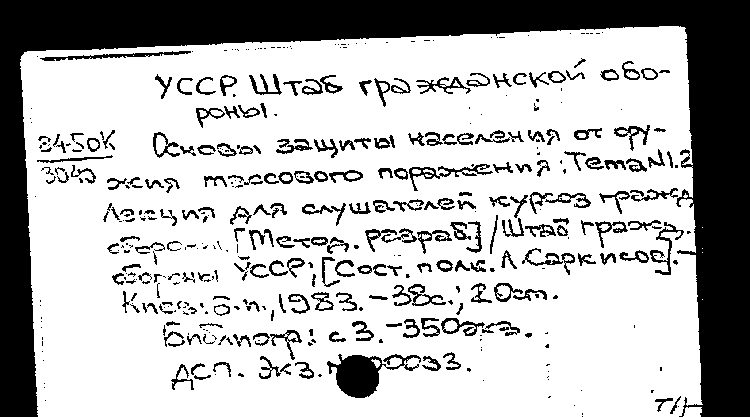 УССР. Штаб гражданской обо-
роны.
84.50К Основы защиты населения от ору-
жия массового поражения: Тема N1.2
Лекция для слушателей курсов гражд.
обороны. [Метод. разраб.] / Штаб гражд.
обороны УССР; [Сост. полк. Л. Саркисов]. –
Киев: б. и., 1983. – 38 с.; 20 ст.
Библиогр.: с 3. – 350 экз.
ДСП. Экз. №